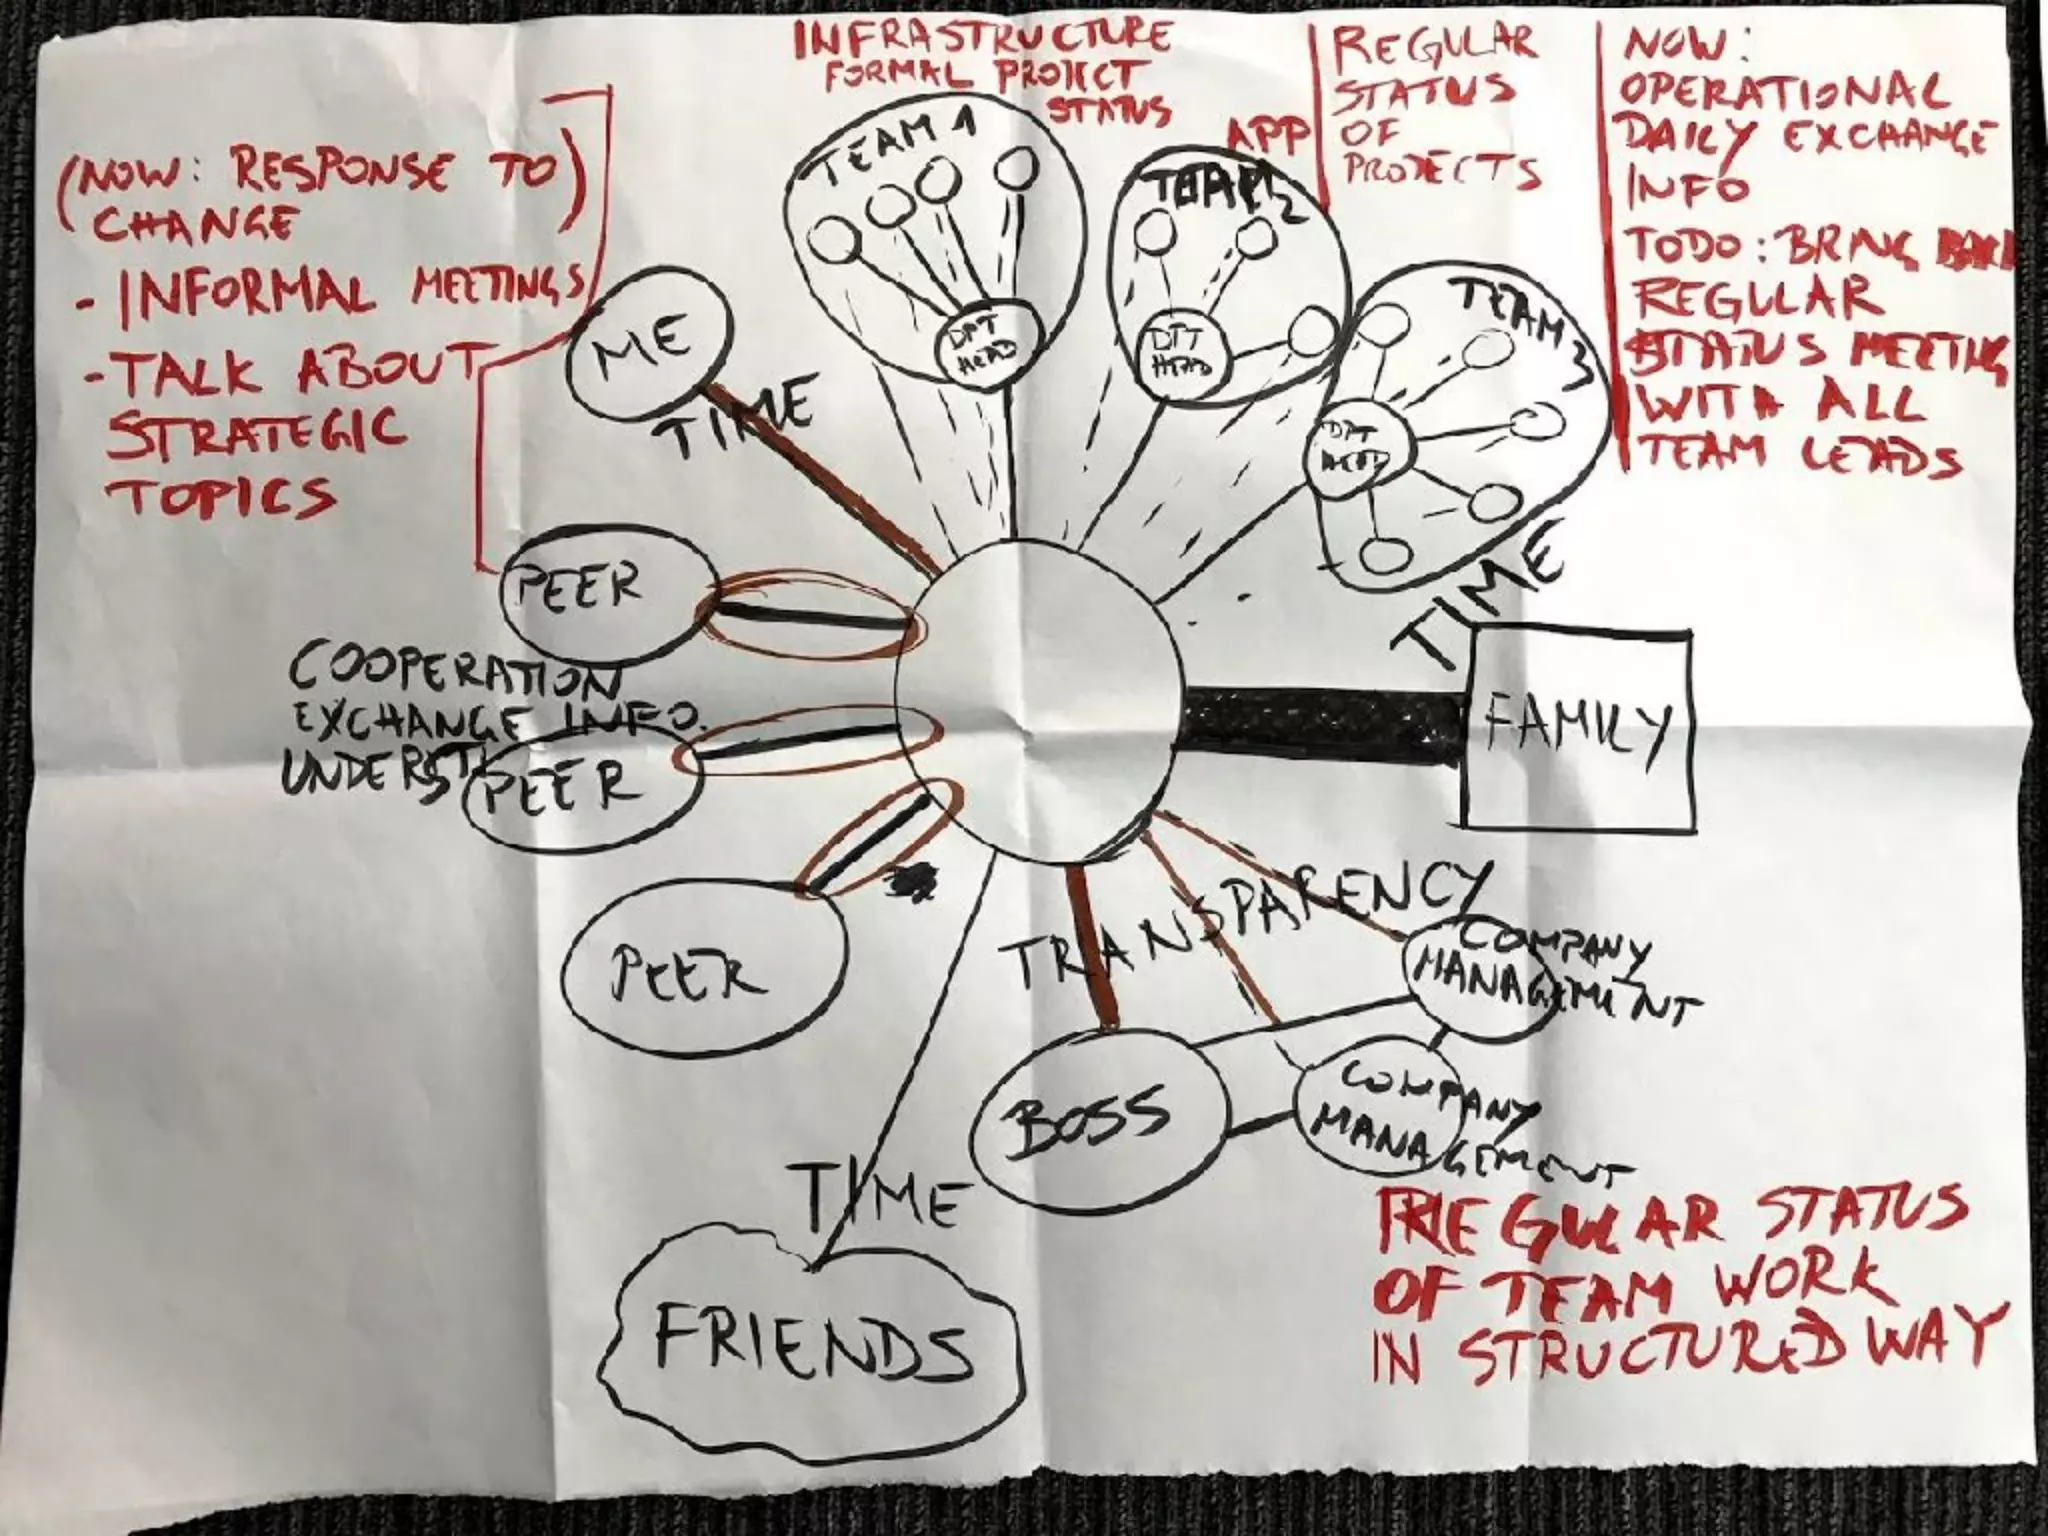 INFRASTRUCTURE
FORMAL PROJECT
STATUS
REGULAR
STATUS
OF
PROJECTS
NOW:
OPERATIONAL
DAILY EXCHANGE
INFO
TODO: BRING BACK
REGULAR
STATUS MEETING
WITH ALL
TEAM LEADS
(NOW: RESPONSE TO)
CHANGE
- INFORMAL MEETINGS
- TALK ABOUT
STRATEGIC
TOPICS
TEAM 1
DPT
HEAD
APP
TEAM 2
DPT
HEAD
TEAM 3
DPT
HEAD
ME
TIME
TIME
FAMILY
PEER
COOPERATION
EXCHANGE INFO.
UNDERST
PEER
PEER
TRANSPARENCY
COMPANY
MANAGEMENT
COMPANY
MANAGEMENT
BOSS
TIME
FRIENDS
REGULAR STATUS
OF TEAM WORK
IN STRUCTURED WAY